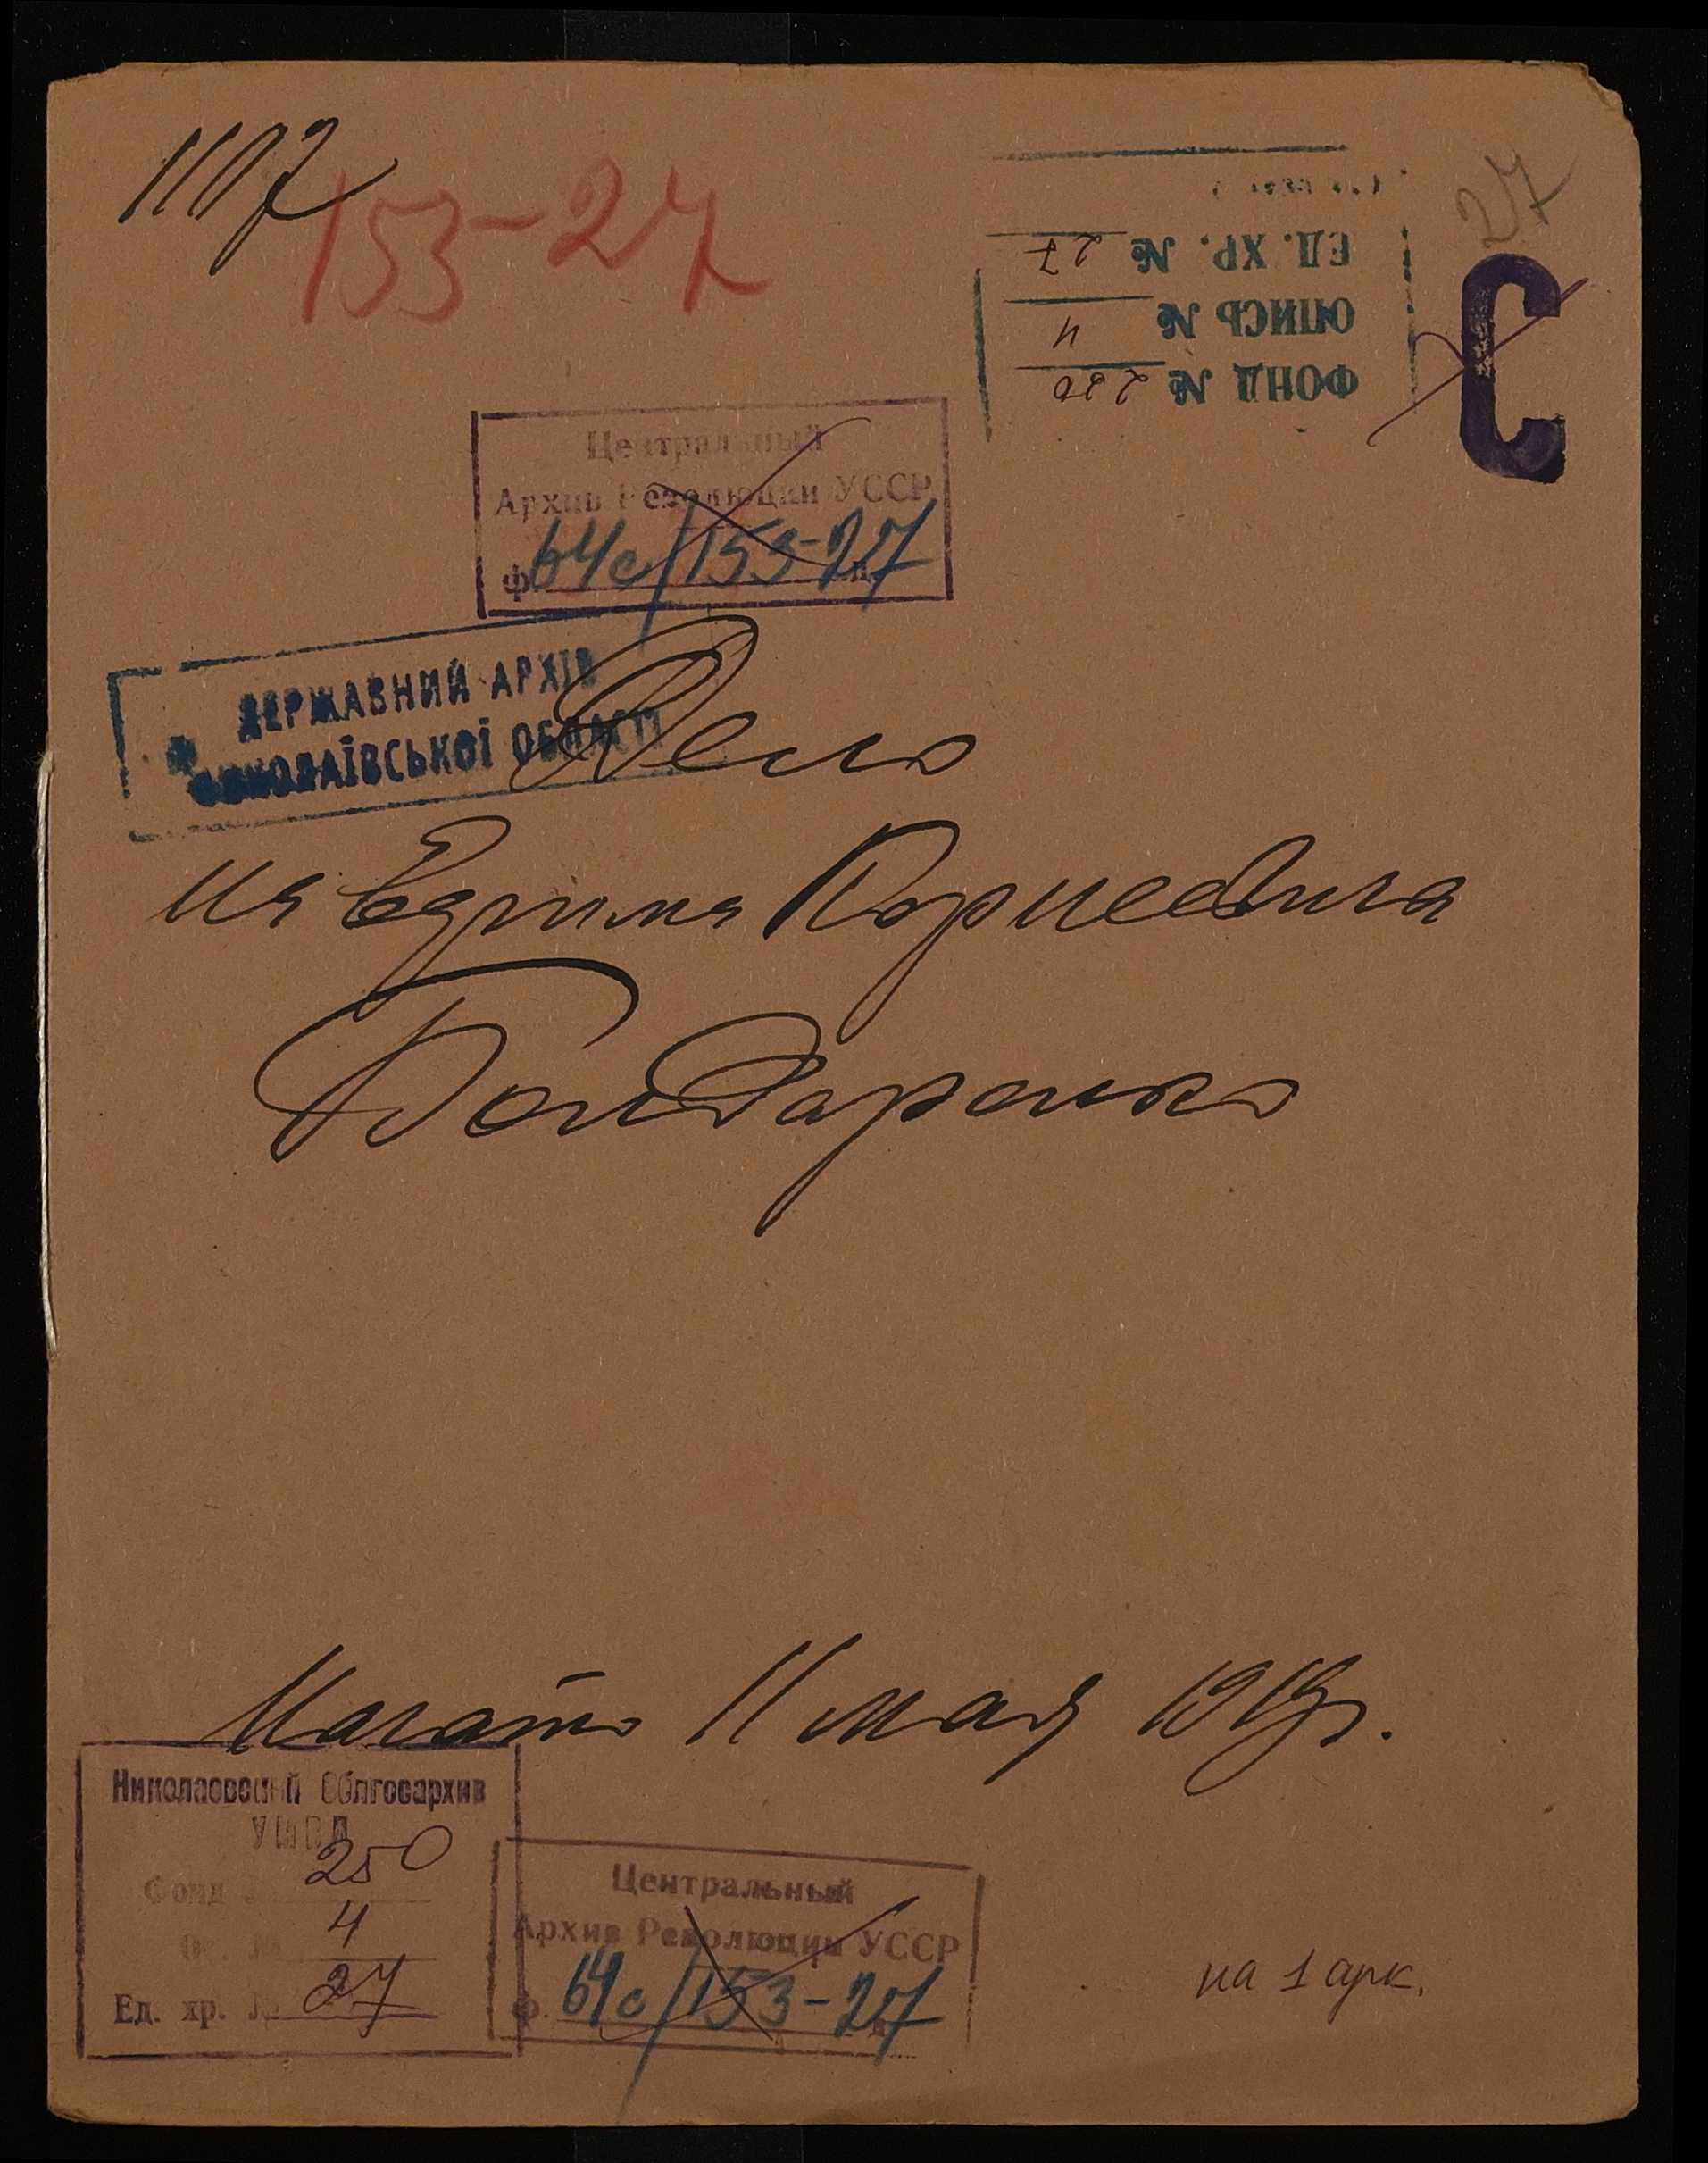 1107
153-27
27
ФОНД № 250
ОПИСЬ № 4
ЕД. ХР. № 27
С
Центральный
Архив Революции УССР
ф. 64с/153-27
ДЕРЖАВНИЙ АРХІВ
МИКОЛАЇВСЬКОЇ ОБЛАСТІ
Дело
на Ефима Корнеевича
Бондаренко
Начато 11 мая 1913г.
Николаевский Облгосархив
УМВД
Фонд № 250
Оп. № 4
Ед. хр. № 27
Центральный
Архив Революции УССР
ф. 64с/153-27
на 1 арк.